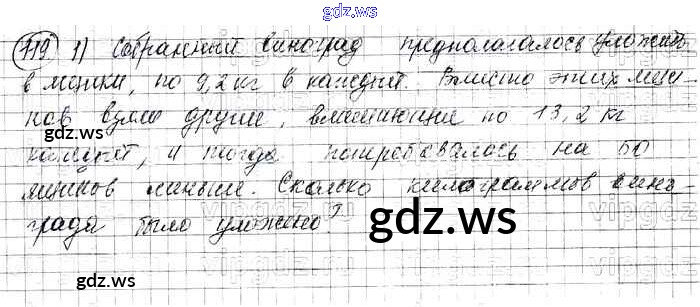 gdz.ws
719. 1) Собранный виноград предполагалось уложить
в ящики, по 9,2 кг в каждый. Вместо этих ящи-
ков взяли другие, вмещающие по 13,2 кг
gdz.ws
каждый, и тогда потребовалось на 50
ящиков меньше. Сколько килограммов вино-
града было уложено?
gdz.ws
gdz.ws